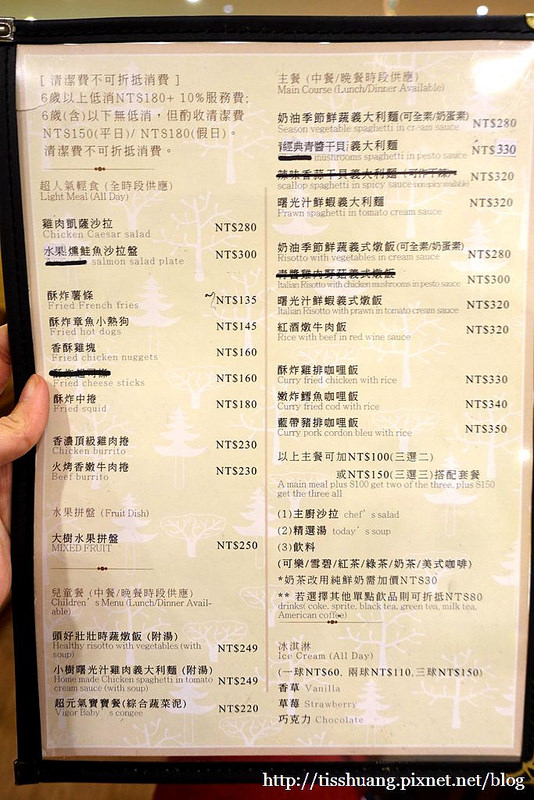 [ 清潔費不可折抵消費 ]
6歲以上低消NT$180+ 10%服務費;
6歲(含)以下無低消，但酌收清潔費
NT$150(平日)/ NT$180(假日)。
清潔費不可折抵消費。
超人氣輕食 (全時段供應)
Light Meal (All Day)
雞肉凱薩沙拉
Chicken Caesar salad NT$280
水果燻鮭魚沙拉盤
salmon salad plate NT$300
酥炸薯條
Fried French fries NT$135
酥炸章魚小熱狗
Fried hot dogs NT$145
香酥雞塊
Fried chicken nuggets NT$160
Fried cheese sticks NT$160
酥炸中捲
Fried squid NT$180
香濃頂級雞肉捲
Chicken burrito NT$230
火烤香嫩牛肉捲
Beef burrito NT$230
水果拼盤 (Fruit Dish)
大樹水果拼盤
MIXED FRUIT NT$250
兒童餐 (中餐/晚餐時段供應)
Children's Menu (Lunch/Dinner Avail-
able)
頭好壯壯時蔬燉飯 (附湯)
Healthy risotto with vegetables (with
soup) NT$249
小樹曙光汁雞肉義大利麵 (附湯)
Home made Chicken spaghetti in tomato
cream sauce (with soup) NT$249
超元氣寶寶餐(綜合蔬菜泥)
Vigor Baby's congee NT$220
主餐 (中餐/晚餐時段供應)
Main Course (Lunch/Dinner Available)
奶油季節鮮蔬義大利麵(可全素/奶蛋素)
Season vegetable spaghetti in cream sauce NT$280
經典青醬干貝義大利麵
mushrooms spaghetti in pesto sauce NT$330
辣味香蒜干貝義大利麵
scallop spaghetti in spicy sauce NT$320
曙光汁鮮蝦義大利麵
Prawn spaghetti in tomato cream sauce NT$320
奶油季節鮮蔬義式燉飯(可全素/奶蛋素)
Risotto with vegetables in cream sauce NT$280
青醬雞肉野菇義式燉飯
Italian Risotto with chicken mushrooms in pesto sauce NT$300
曙光汁鮮蝦義式燉飯
Italian Risotto with prawn in tomato cream sauce NT$320
紅酒燉牛肉飯
Rice with beef in red wine sauce NT$320
酥炸雞排咖哩飯
Curry fried chicken with rice NT$330
嫩炸鱈魚咖哩飯
Curry fried cod with rice NT$340
藍帶豬排咖哩飯
Curry pork cordon bleu with rice NT$350
以上主餐可加NT$100(三選二)
或NT$150(三選三)搭配套餐
A main meal plus $100 get two of the three, plus $150
get the three all
(1)主廚沙拉 chef's salad
(2)精選湯 today's soup
(3)飲料
(可樂/雪碧/紅茶/綠茶/奶茶/美式咖啡)
*奶茶改用純鮮奶需加價NT$30
** 若選擇其他單點飲品則可折抵NT$80
drinks( coke, sprite, black tea, green tea, milk tea,
American coffee)
冰淇淋
Ice Cream (All Day)
(一球NT$60, 兩球NT$110, 三球NT$150)
香草 Vanilla
草莓 Strawberry
巧克力 Chocolate
http://tisshuang.pixnet.net/blog